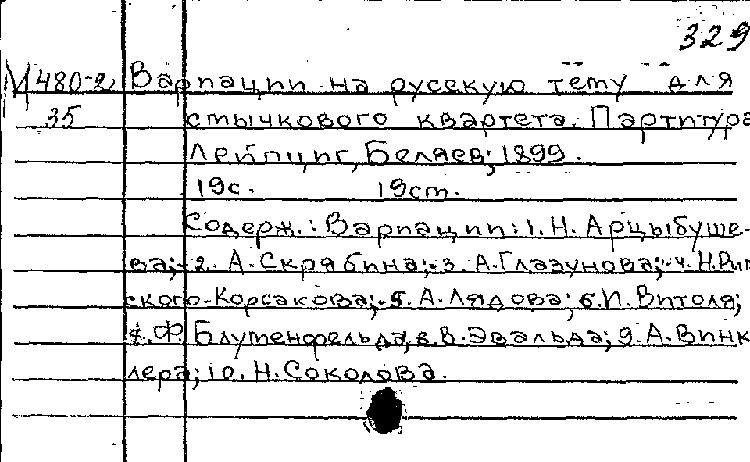 329
М 480-2 Варпации на русскую тему для
35 смычкового квартета. Партитура
Лейпциг, Беляев, 1899.
19с. 19cm.
Содерж.: Вариации: 1. Н. Арцыбуше-
ва; 2. А. Скрябина; 3. А. Глазунова; 4. Н. Рим
ского-Корсакова; 5. А. Лядова; 6. И. Витоля;
7. Ф. Блуменфельда, 8. В. Эвальда; 9. А. Винк
лера; 10. Н. Соколова.